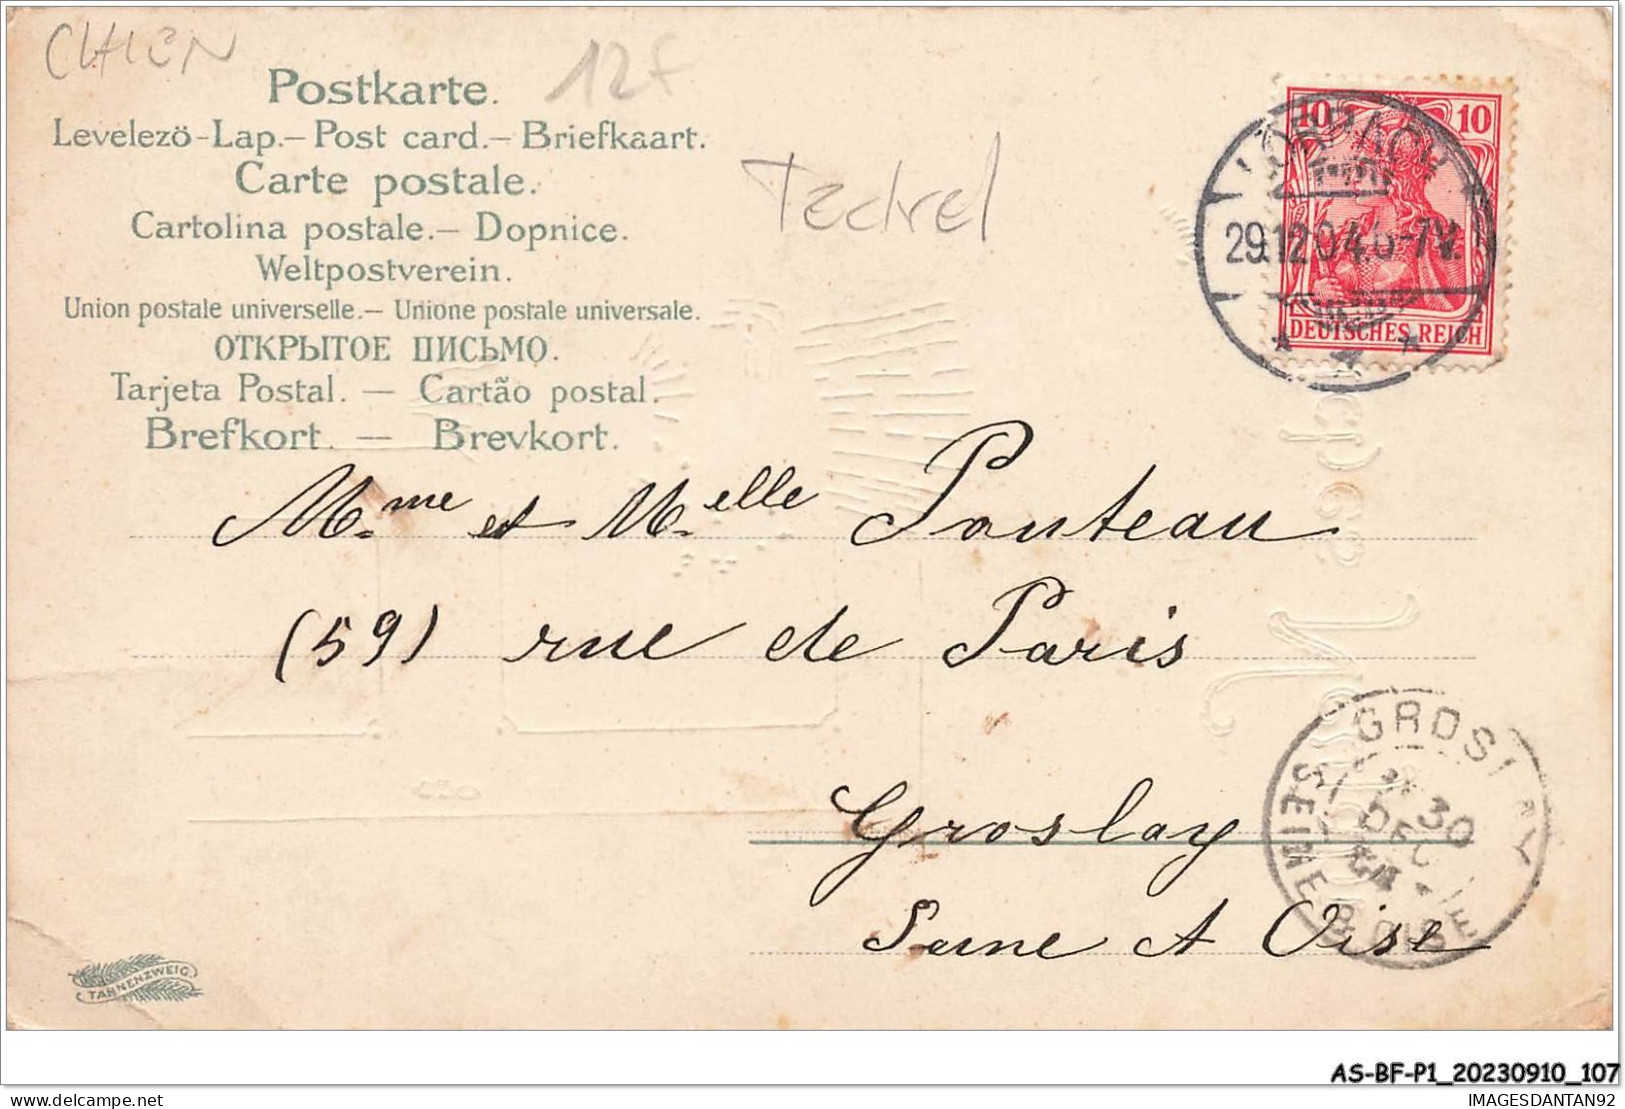 CHIEN
12f
Postkarte.
Levelezö-Lap.– Post card.– Briefkaart.
Carte postale.
Cartolina postale.– Dopnice.
Weltpostverein.
Union postale universelle.– Unione postale universale.
ОТКРЫТОЕ ПИСЬМО.
Tarjeta Postal. — Cartão postal.
Brefkort. — Brevkort.
Teckel
10 10
LÖRRACH
29.12.04.6-7N.
DEUTSCHES REICH
Mme et Melle Pouteau
(59) rue de Paris
Groslay
Seine et Oise
GROSLAY
30
DEC
04
SEINE-ET-OISE
TANNENZWEIG.
AS-BF-P1_20230910_107
delcampe.net
IMAGESDANTAN92